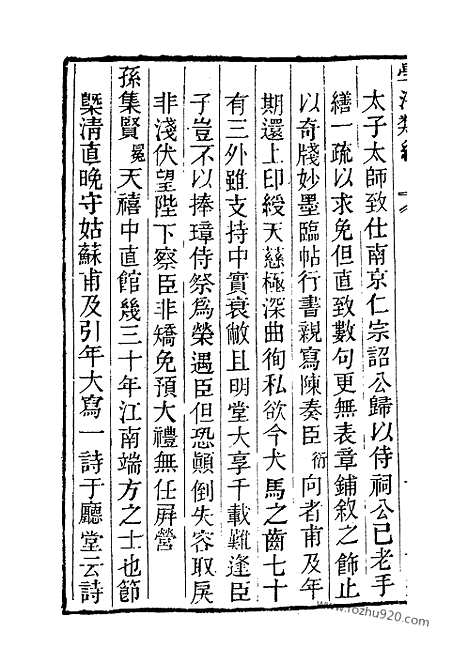 學海類編
太子太師致仕南京仁宗詔公歸以侍祠公已老手
繕一疏以求免但直致數句更無表章鋪敘之飾止
以奇牋妙墨臨帖行書親寫陳奏臣衍向者甫及年
期還上印綬天慈極深曲徇私欲今犬馬之齒七十
有三外雖支持中實衰敝且明堂大享千載難逢臣
子豈不以捧璋侍祭爲榮遇臣但恐顛倒失容取戾
非淺伏望陛下察臣非矯免預大禮無任屏營
孫集賢冕天禧中直館幾三十年江南端方之士也節
槩清直晚守姑蘇甫及引年大寫一詩于廳堂云詩
www.rozhu920.com